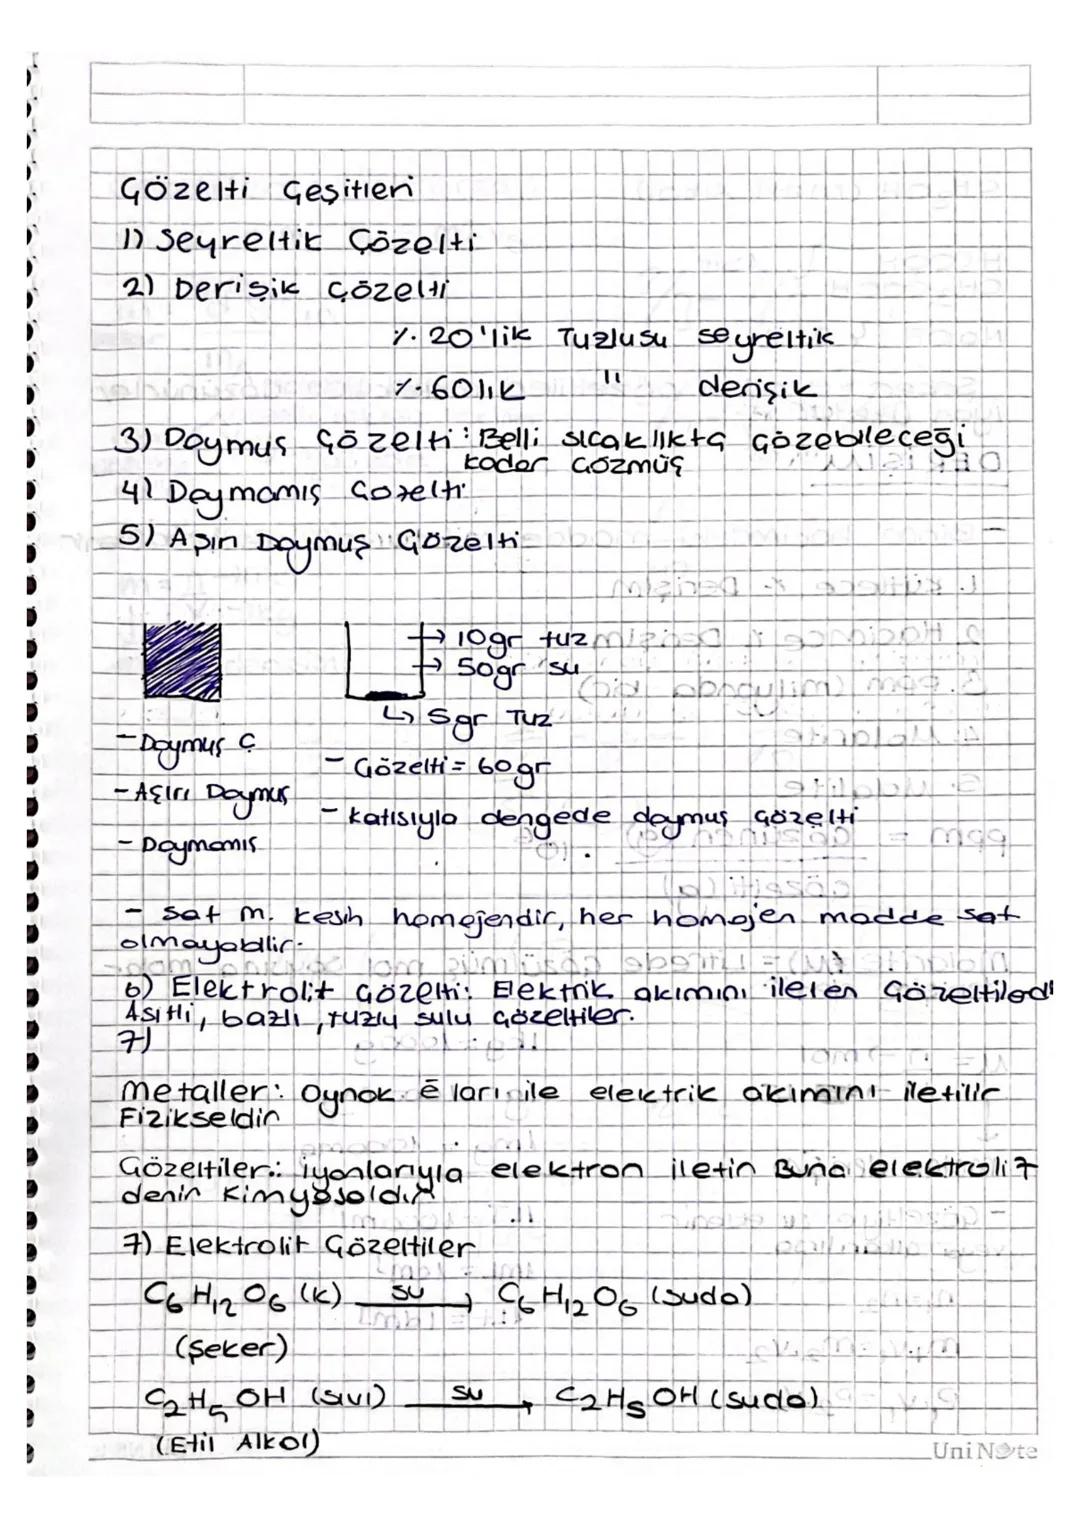 Çözelti Çeşitleri
1) Seyreltik Çözelti
2) Derişik Çözelti
%20'lik Tuzlusu seyreltik
%60lık " derişik
3) Doymuş Çözelti : Belli sıcaklıkta Çözebileceği
kadar Çözmüş
4) Doymamış Çözelti
5) Aşırı Doymuş Çözelti
→ 10gr tuz
→ 50gr su
↳ 5gr Tuz
- Doymuş Ç
- Aşırı Doymuş
- Doymamış
- Çözelti = 60gr
- katısıyla dengede doymuş çözelti
- saf m. kesin homojendir, her homojen madde saf
olmayabilir.
6) Elektrolit Çözelti: Elektrik akımını ileten Çözeltilerdir
Asitli, bazlı, tuzlu sulu çözeltiler.
7)
Metaller: Oynak ē ları ile elektrik akımını iletilir
Fizikseldir
Çözeltiler: iyonlarıyla elektron iletir Buna elektrolit
denir Kimyasaldır
7) Elektrolit Çözeltiler
C6H12O6 (k) su → C6H12O6 (suda)
(Şeker)
C2H5OH (sıvı) su → C2H5OH (suda)
(Etil Alkol)
UniNote